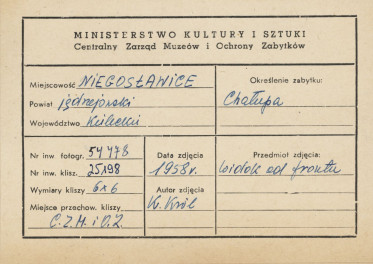 MINISTERSTWO KULTURY I SZTUKI
Centralny Zarząd Muzeów i Ochrony Zabytków
Miejscowość NIEGOSŁAWICE
Powiat jędrzejowski
Województwo Kielecki
Określenie zabytku:
Chałupa
Nr inw. fotogr. 54478
Nr inw. klisz. 25198
Wymiary kliszy 6x6
Miejsce przechow. kliszy
C.Z.M. i O.Z.
Data zdjęcia
1958 r.
Autor zdjęcia
K. Król
Przedmiot zdjęcia:
widok od frontu